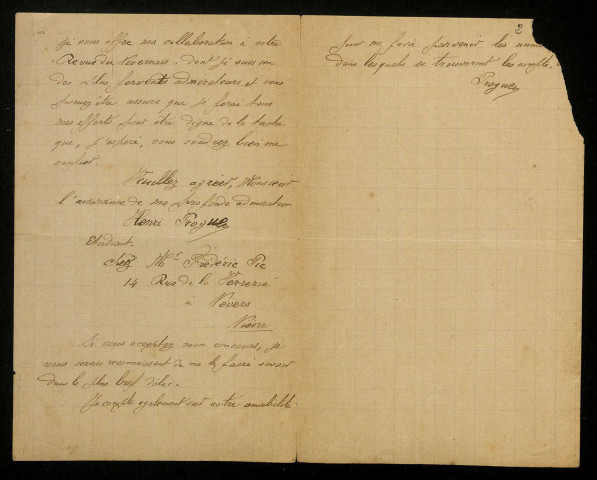 je vous offre ma collaboration à votre
Revue du Nivernais - dont je suis un
des plus fervents admirateurs, et vous
pouvez être assuré que je ferai tous
mes efforts pour être digne de la tache
que, j'espère, vous voudrez bien me
confier.
Veuillez agréer, Monsieur
l'assurance de ma profonde admiration
Henri
Etudiant.
chez Mr Frédéric Pic
14 Rue de la Verrerie
à Nevers
Nièvre
Si vous acceptez mon concours, je
vous serais reconnaissant de me le faire savoir
dans le plus bref délai.
Je compte également sur votre amabilité
2
pour me faire parvenir les numé
dans lesquels se trouveront les